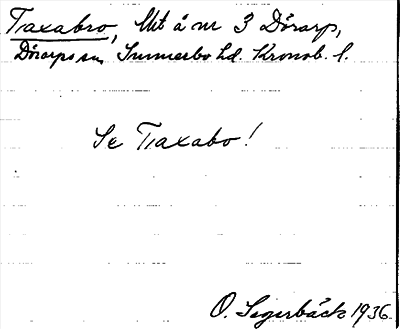 Traxabro, Mt å nr 3 Dörarp,
Dörarps sn, Sunnerbo hd. Kronob. l.
Se Traxabo!
O. Segerbäck 1936